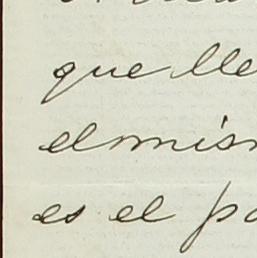 que lle
el mism
es el pa